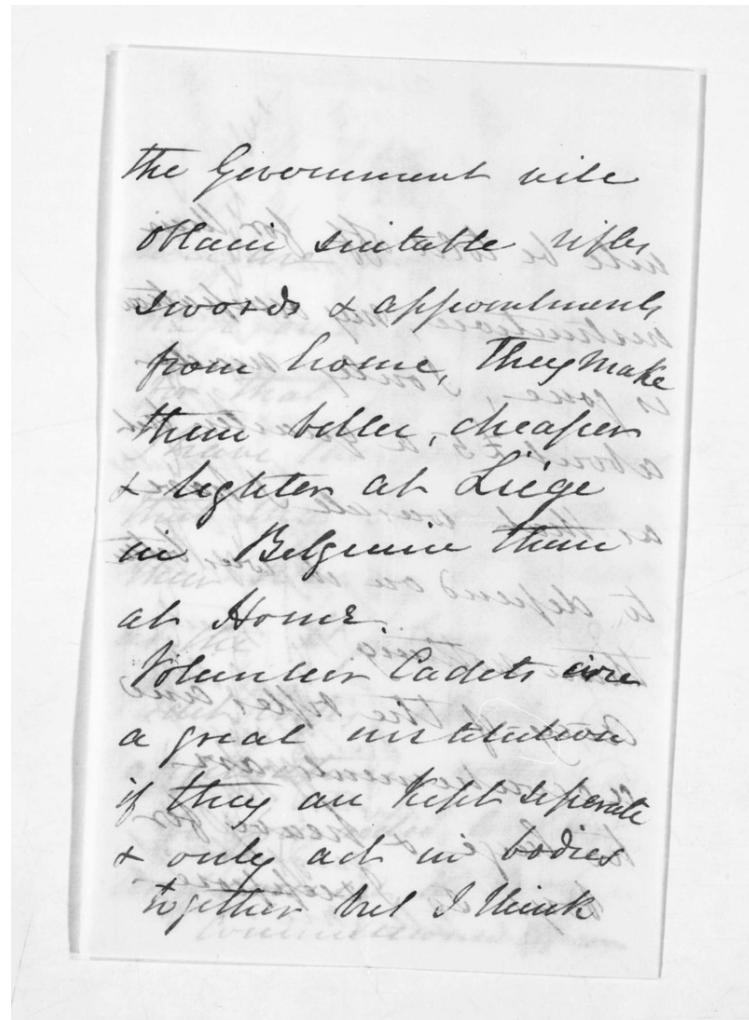 the Government will
obtain suitable rifles
swords & appointments
from home, They make
them better, cheaper
& lighter at Liége
in Belgium than
at Home.
Volunteer Cadets are
a great institution
if they are kept seperate
& only act in bodies
together but I think